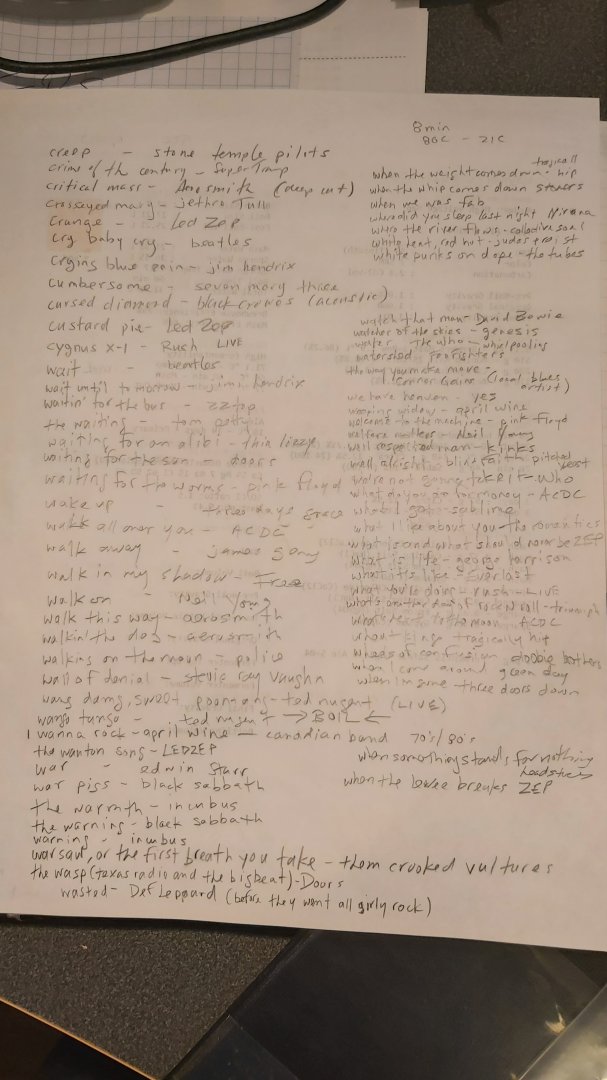 creep - stone temple pilots
crime of th century - supertramp
critical mass - Aresmith (deep cut)
crosseyed mary - jethro Tull
Crunge - Led Zep
cry baby cry - beatles
crying blue rain - jim hendrix
cumbersome - seven mary three
cursed diamond - black crows (acoustic)
custard pie - Led Zep
cygnus x-1 - Rush LIVE
wait - beatles
wait until tomorrow - jimi hendrix
waitin' for the bus - zztop
the waiting - tom petty
waiting for an alibi - thin lizzy
waiting for the sun - doors
waiting for the worms - pink floyd
wake up - three days grace
walk all over you - ACDC
walk away - james gang
walk in my shadow - Free
walk on - Neil Young
walk this way - aerosmith
walkin' the dog - aerosmith
walking on the moon - police
wall of denial - stevie ray vaughn
wang dang, sweet poontang - ted nugent (LIVE)
wango tango - ted nugent → BOIL ←
I wanna rock - april wine - canadian band 70's/80's
the wanton song - LEDZEP
war - edwin Starr
war pigs - black sabbath
the warmth - incubus
the warning - black sabbath
warning - incubus
warsaw, or the first breath you take - them crooked vultures
the wasp (texas radio and the big beat) - Doors
wasted - Def Leppard (before they went all girly rock)
8 min
86C - 21C
tragicall
when the weight comes down - hip
when the whip comes down stones
when we was fab
where did you sleep last night Nirvana
where the river flows - collective soul
white heat, red hot - judas priest
white punks on dope - the tubes
watch that man David Bowie
watcher of the skies - genesis
water The who - whirlpooling
watershed foofighters
the way you make move -
Connor Gains (local blues artist)
we have heaven - yes
weeping widow - april wine
welcome to the machine - pink floyd
welfare mothers - Neil Young
well respected man - kinks
well, alright - blind faith pitched yeast
we're not gonna take it - who
what do you do for money - ACDC
what i got - sublime
what I like about you - the romantics
what is and what should never be ZEP
what is life - george harrison
what it's like - Everlast
what you're doing - rush - LIVE
what's another day of rock n roll - triumph
what's next to the moon - ACDC
wheat kings tragically hip
wheels of confusion doobie brothers
when I come around green day
when im gone three doors down
when something stands for nothing
headstones
when the levee breaks ZEP